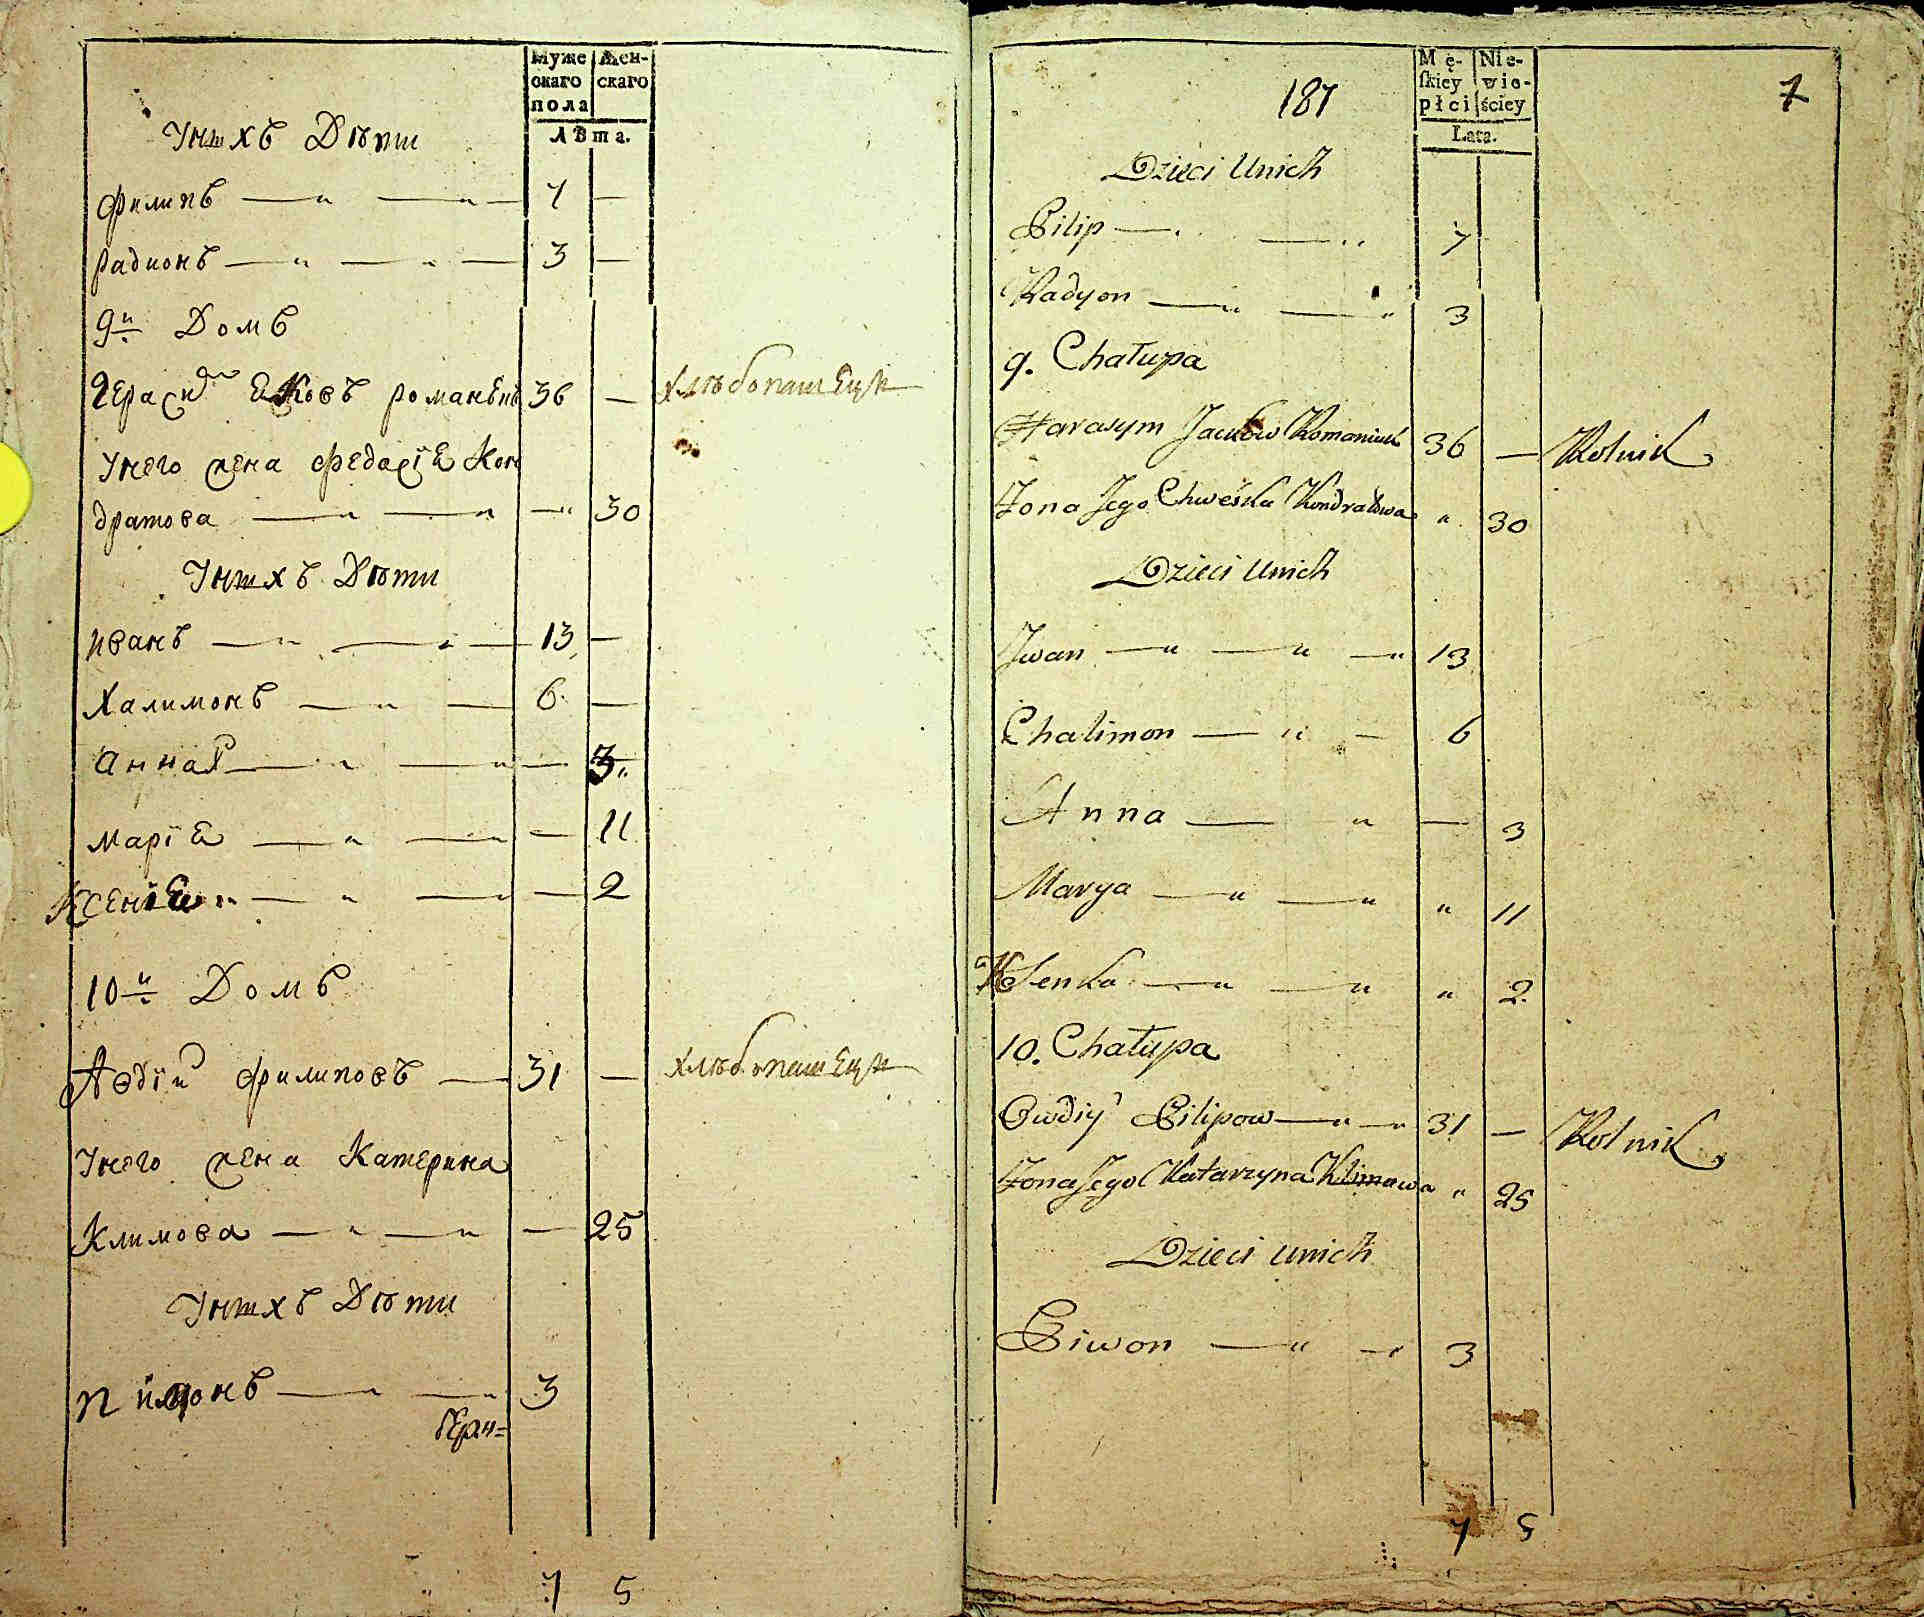 Муже
скаго
пола
Жен-
скаго
Лѣта.
Унихъ Дѣти
Филипъ — „ — „ — 7 —
Радионъ — „ — „ — 3 —
9й Домъ
Герасим Яковъ Романюкъ 36 — хлѣбопашецъ
Унего жена Федосiя Кон
дратова — „ — „ — „ 30
Унихъ Дѣти
Иванъ — „ — „ — 13 —
Халимонъ — „ — 6 —
Анна — „ — „ — 3„
Марiя — „ — „ — 11
Ксенiя „ — „ — „ — 2
10й Домъ
Авдiй Филиповъ — 31 — хлѣбопашецъ
Унего жена Катерина
Климова — „ — „ — 25
Унихъ Дѣти
Пимонъ — „ — „ 3
7 5
187
7
Mę-
skiey
płci
Nie-
wie-
ściey
Lata.
Dzieci Unich
Pilip — „ — „ 7
Radyon — „ — „ 3
9. Chałupa
Harasym Jacków Romaniuk 36 — Rolnik
Żona Jego Chweśka Kondratowa „ 30
Dzieci Unich
Jwan — „ — „ — „ 13
Chalimon — „ — 6
Anna — „ — 3
Marya — „ — „ „ 11
Ksenka — „ — „ „ 2.
10. Chałupa
Owdiy Pilipow — „ — „ 31 — Rolnik
Żona Jego Katarzyna Klimowa „ 25
Dzieci unich
Piwon — „ — „ 3
7 5